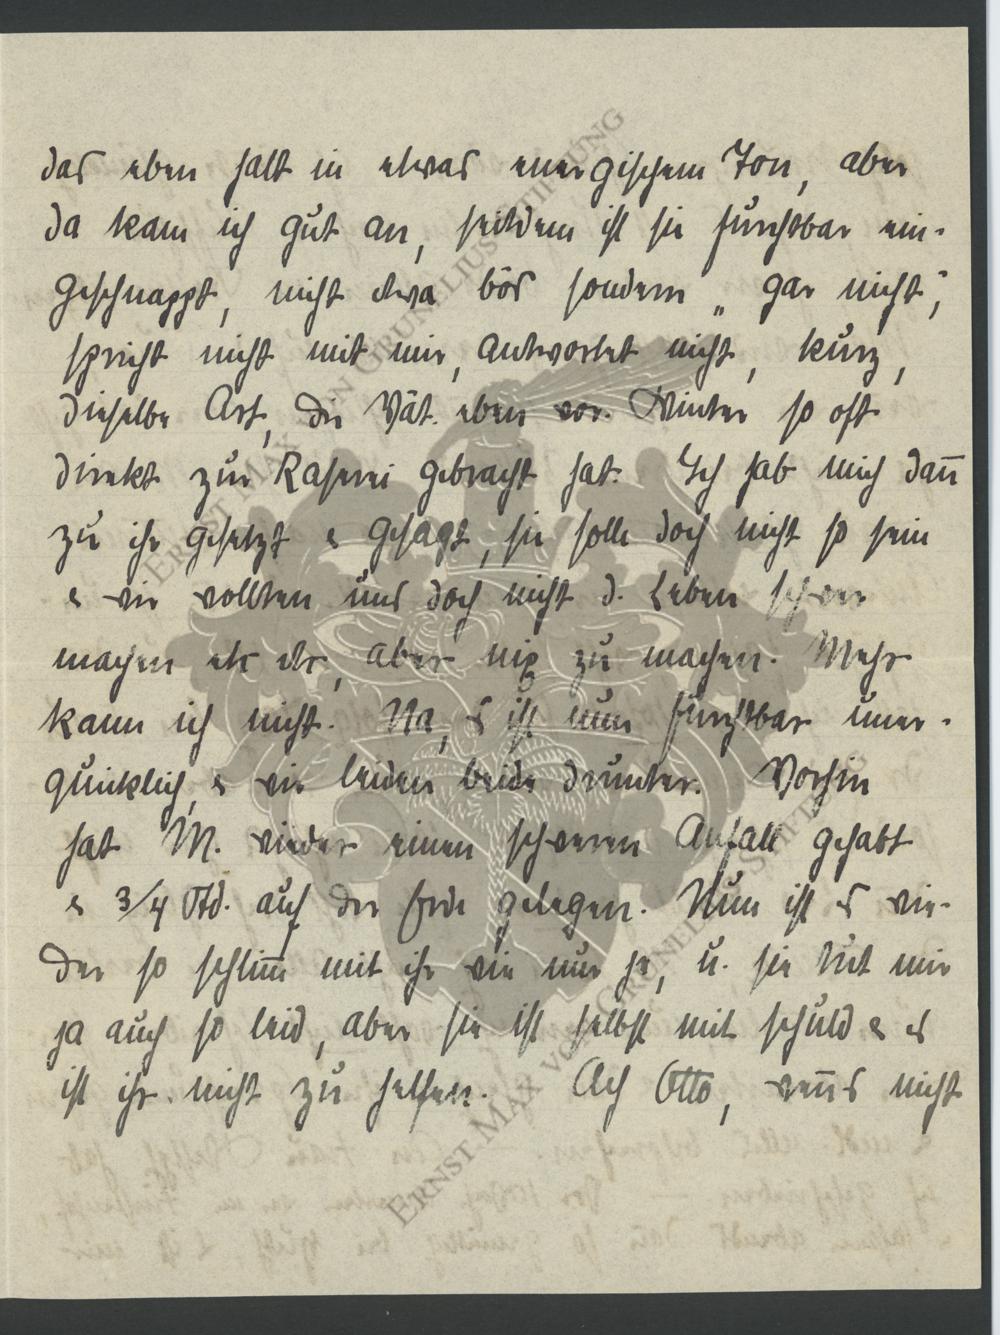 das eben halt in etwas energischem Ton, aber
da kam ich gut an, seitdem ist sie furchtbar ein-
geschnappt, nicht etwa bös sondern „gar nicht",
spricht nicht mit mir, antwortet nicht, kurz,
dieselbe Art, die Vät. eben vor. Winter so oft
direkt zur Raserei gebracht hat. Ich hab mich dan̄
zu ihr gesetzt & gesagt, sie solle doch nicht so sein
& wir wollten uns doch nicht d. Leben schwer
machen etc etc, aber nix zu machen. Mehr
kann ich nicht. Na, es ist nun furchtbar uner-
quicklich, & wir leiden beide drunter. Vorhin
hat M. wieder einen schweren Anfall gehabt
& 3/4 Std. auf der Erde gelegen. Nun ist es wie-
der so schlim̄ mit ihr wie nur je, u. sie tut mir
ja auch so leid, aber sie ist selbst mit schuld & es
ist ihr nicht zu helfen. Ach Otto, wen̄s nicht
ERNST MAX VON GRUNELIUS STIFTUNG
ERNST MAX VON GRUNELIUS STIFTUNG